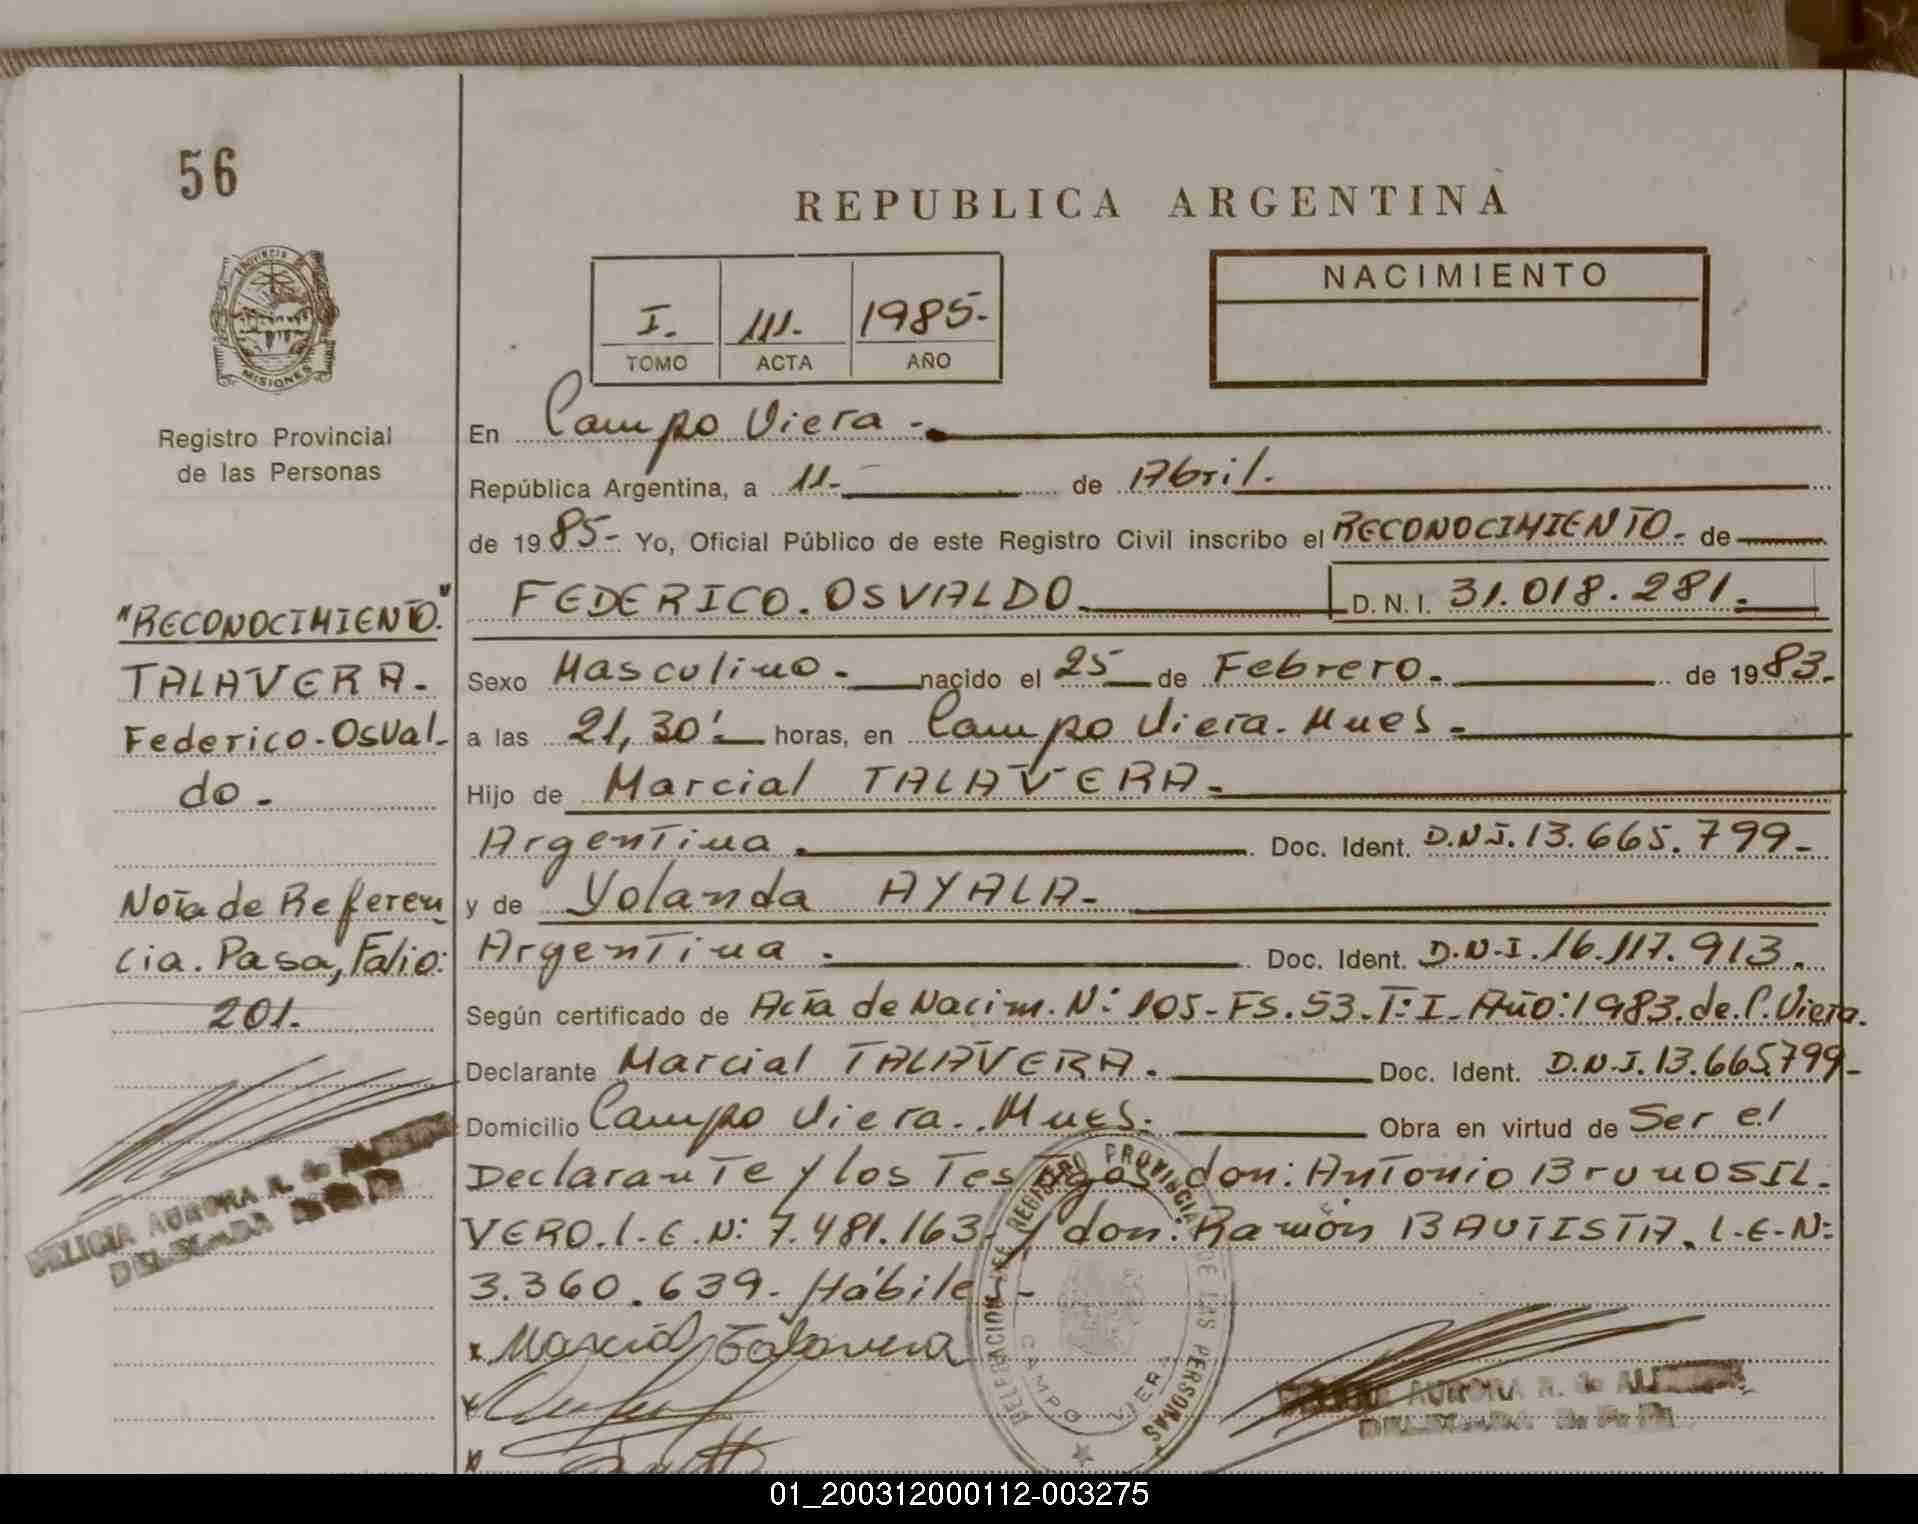 56
REPUBLICA ARGENTINA
NACIMIENTO
I. 111. 1985.-
TOMO ACTA AÑO
PROVINCIA
MISIONES
Registro Provincial
de las Personas
"RECONOCIMIENTO."
TALAVERA.-
Federico-Osval-
do.-
Nota de Referen
cia. Pasa, Folio:
201.
En Campo Viera.-
República Argentina, a 11.- de Abril.
de 1985.- Yo, Oficial Público de este Registro Civil inscribo el RECONOCIMIENTO.- de
FEDERICO.OSVALDO. D. N. I. 31.018.281.-
Sexo Masculino.- nacido el 25 de Febrero.- de 1983.-
a las 21,30'.- horas, en Campo Viera. Mnes.-
Hijo de Marcial TALAVERA.-
Argentina.- Doc. Ident. D.N.I.13.665.799.-
y de Yolanda AYALA.-
Argentina.- Doc. Ident. D.N.I.16.117.913.-
Según certificado de Acta de Nacim. N: 105-FS.53.T:I-Año:1983.de.C.Viera.
Declarante Marcial TALAVERA.- Doc. Ident. D.N.I.13.665.799.-
Domicilio Campo Viera.. Mnes.- Obra en virtud de Ser el
Declarante y los Testigos don: Antonio Bruno SIL-
VERO.L.E.N: 7.481.163.- y don: Ramón BAUTISTA. L-E-N:
3.360.639.- Hábile -
x Marcial Talavera
DELEGACION DEL REGISTRO PROVINCIAL DE LAS PERSONAS
CAMPO VIERA
DELICIA AURORA R. de
DELEGADA
AURORA R. de
01_200312000112-003275